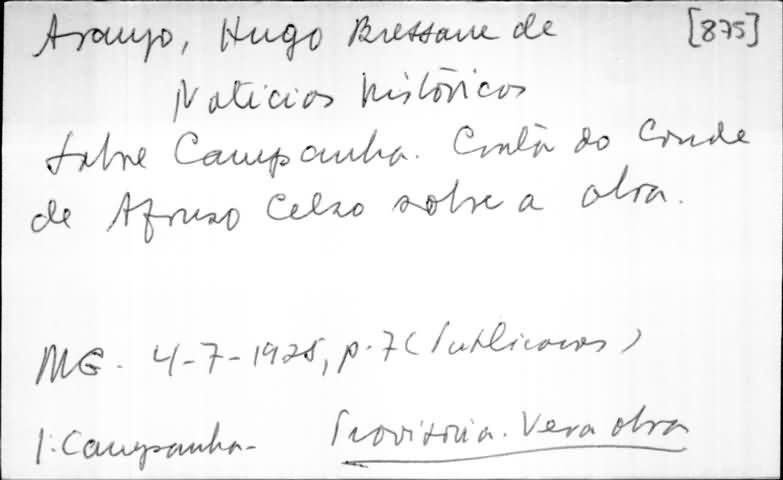 Araujo, Hugo Bressane de [875]
Noticias históricas
sobre Campanha. Conta do Conde
de Afonso Celso sobre a obra.
MG. 4-7-1925, p. 7 (Publicacoes)
1. Campanha. Provisória. Ver a obra